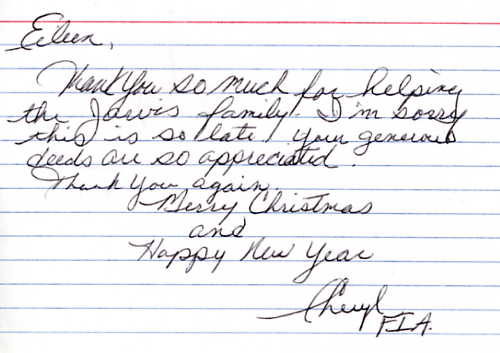 Eileen,
Thank you so much for helping
the Jarvis family. I'm sorry
this is so late! your generous
deeds are so appreciated.
Thank you again.
Merry Christmas
and
Happy New Year
Cheryl
F.I.A.